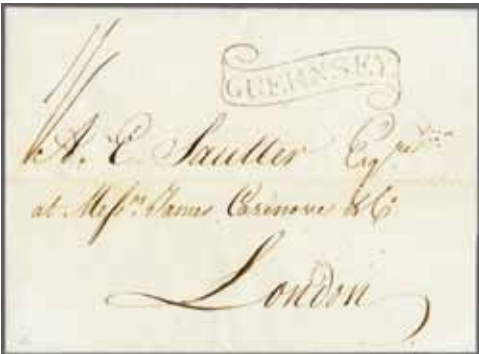 GUERNSEY
A. C. Saulter Esq.
at Mess.rs James Cazenove & Co.
London